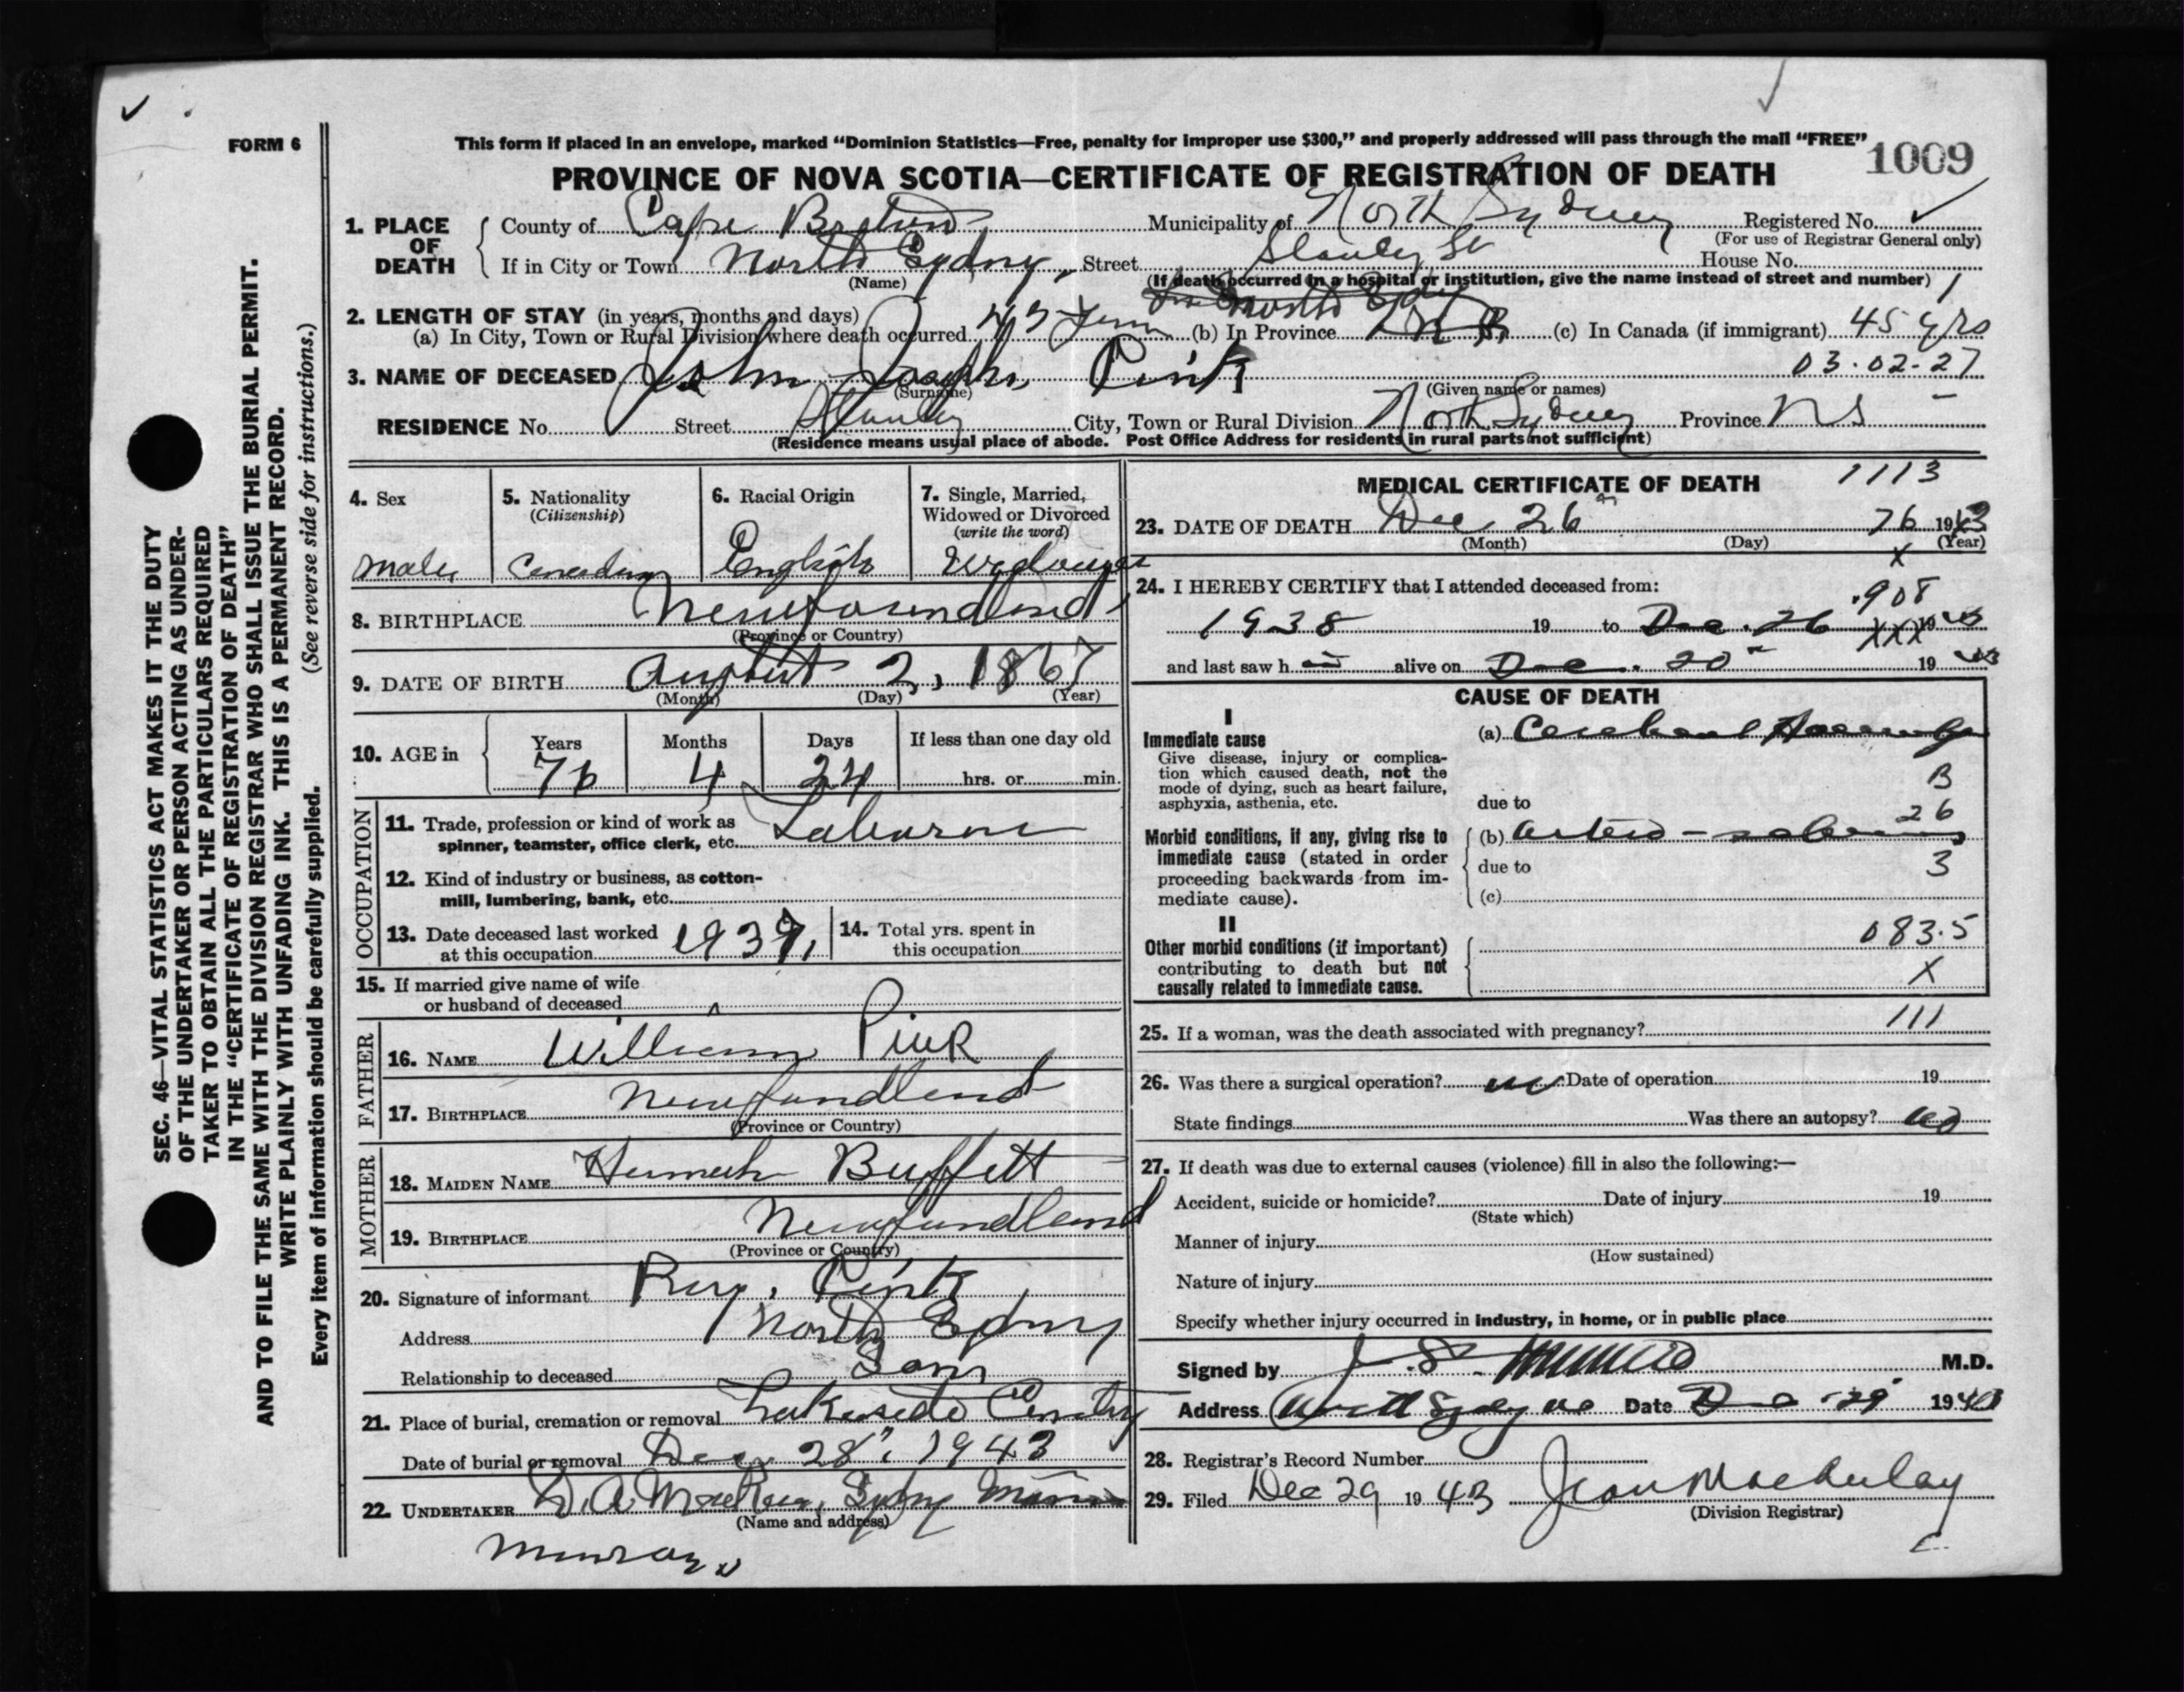 FORM 6
This form if placed in an envelope, marked "Dominion Statistics—Free, penalty for improper use $300," and properly addressed will pass through the mail "FREE"
1009
PROVINCE OF NOVA SCOTIA—CERTIFICATE OF REGISTRATION OF DEATH
1. PLACE OF DEATH
County of Cape Breton Municipality of North Sydney Registered No.
(For use of Registrar General only)
If in City or Town North Sydney, Street Stanley St House No.
(Name) (If death occurred in a hospital or institution, give the name instead of street and number) 1
2. LENGTH OF STAY (in years, months and days)
(a) In City, Town or Rural Division where death occurred 45 Years (b) In Province (c) In Canada (if immigrant) 45 yrs
03.02-27
3. NAME OF DECEASED John Joseph Pink
(Surname) (Given name or names)
RESIDENCE No. Street Stanley City, Town or Rural Division North Sydney Province NS
(Residence means usual place of abode. Post Office Address for residents in rural parts not sufficient)
4. Sex
male
5. Nationality
(Citizenship)
Canadian
6. Racial Origin
English
7. Single, Married,
Widowed or Divorced
(write the word)
Widower
8. BIRTHPLACE Newfoundland
(Province or Country)
9. DATE OF BIRTH August 2, 1867
(Month) (Day) (Year)
10. AGE in
Years Months Days If less than one day old
76 4 24 hrs. or min.
OCCUPATION
11. Trade, profession or kind of work as
spinner, teamster, office clerk, etc.
12. Kind of industry or business, as cotton-
mill, lumbering, bank, etc.
13. Date deceased last worked
at this occupation 1937,
14. Total yrs. spent in
this occupation
15. If married give name of wife
or husband of deceased
FATHER
16. NAME William Pink
17. BIRTHPLACE Newfundland
(Province or Country)
MOTHER
18. MAIDEN NAME Buffett
19. BIRTHPLACE Newfundland
(Province or Country)
20. Signature of informant Pink
Address North Sydney
Relationship to deceased Son
21. Place of burial, cremation or removal Lakeside
Date of burial or removal Dec 28, 1943
22. UNDERTAKER D. A. Sydney Mines
(Name and address)
MEDICAL CERTIFICATE OF DEATH
1113
23. DATE OF DEATH Dec 26 76 1943
(Month) (Day) (Year)
X
24. I HEREBY CERTIFY that I attended deceased from:
.908
1938 19 to Dec. 26 XXX 19 43
and last saw h alive on Dec. 20 19 43
CAUSE OF DEATH
I
Immediate cause
Give disease, injury or complica-
tion which caused death, not the
mode of dying, such as heart failure,
asphyxia, asthenia, etc.
(a) Cerebral
B
due to
26
Morbid conditions, if any, giving rise to
immediate cause (stated in order
proceeding backwards from im-
mediate cause).
(b) arterio-
due to
3
(c)
II
Other morbid conditions (if important)
contributing to death but not
causally related to immediate cause.
083.5
X
111
25. If a woman, was the death associated with pregnancy?
26. Was there a surgical operation? no Date of operation 19
State findings Was there an autopsy? no
27. If death was due to external causes (violence) fill in also the following:—
Accident, suicide or homicide? Date of injury 19
(State which)
Manner of injury
(How sustained)
Nature of injury
Specify whether injury occurred in industry, in home, or in public place
Signed by J. S. M.D.
Address North Sydney Date Dec 29 1943
28. Registrar's Record Number
29. Filed Dec 29 19 43 Jean
(Division Registrar)
SEC. 46—VITAL STATISTICS ACT MAKES IT THE DUTY
OF THE UNDERTAKER OR PERSON ACTING AS UNDER-
TAKER TO OBTAIN ALL THE PARTICULARS REQUIRED
IN THE "CERTIFICATE OF REGISTRATION OF DEATH"
AND TO FILE THE SAME WITH THE DIVISION REGISTRAR WHO SHALL ISSUE THE BURIAL PERMIT.
WRITE PLAINLY WITH UNFADING INK. THIS IS A PERMANENT RECORD.
Every item of information should be carefully supplied. (See reverse side for instructions.)